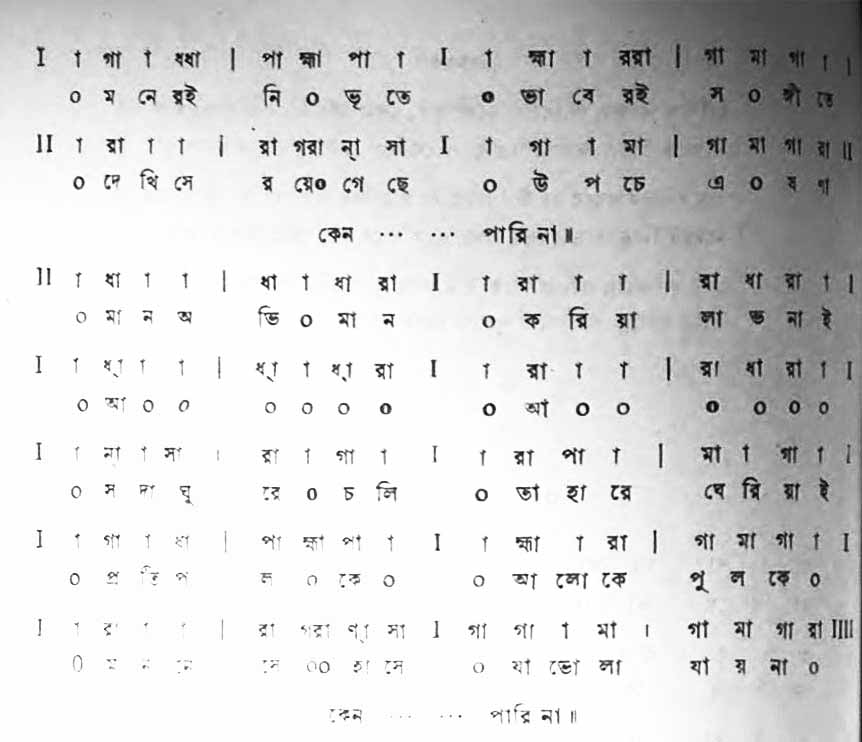 I া গা া ধধা | পা হ্মা পা া I া হ্মা া ররা | গা মা গা া |
০ ম নে রই নি ০ ভৃ তে ০ ভা বে রই স ০ ঙ্গী তে
II া রা া া | রা গরা ন্‌া সা I া গা া মা | গা মা গা রা II
০ দে খি সে র য়ে০ গে ছে ০ উ প চে এ ০ ষ ণ
কেন ··· ··· পারি না॥
II া ধা া া | ধা া ধা রা I া রা া া | রা ধা রা া |
০ মা ন অ ভি ০ মা ন ০ ক রি য়া লা ভ না ই
I া ধ্‌া া া | ধ্‌া া ধ্‌া রা I া রা া া | রা ধা রা া I
০ আ ০ ০ ০ ০ ০ ০ ০ আ ০ ০ ০ ০ ০ ০
I া না া সা । রা া গা া I া রা পা া | মা া গা া |
০ স দা ঘু রে ০ চ লি ০ তা হা রে ঘে রি য়া ই
I া গা া ধা | পা হ্মা পা া I া হ্মা া রা | গা মা গা া I
০ প্র তি প ল ০ কে ০ ০ আ লো কে পু ল কে ০
I া রা া া | রা গরা ণ্‌া সা I গা গা া মা । গা মা গা রা IIII
০ ম ন নে সে ০০ হা সে ০ যা ভো লা যা য় না ০
কেন ··· ··· পারি না॥